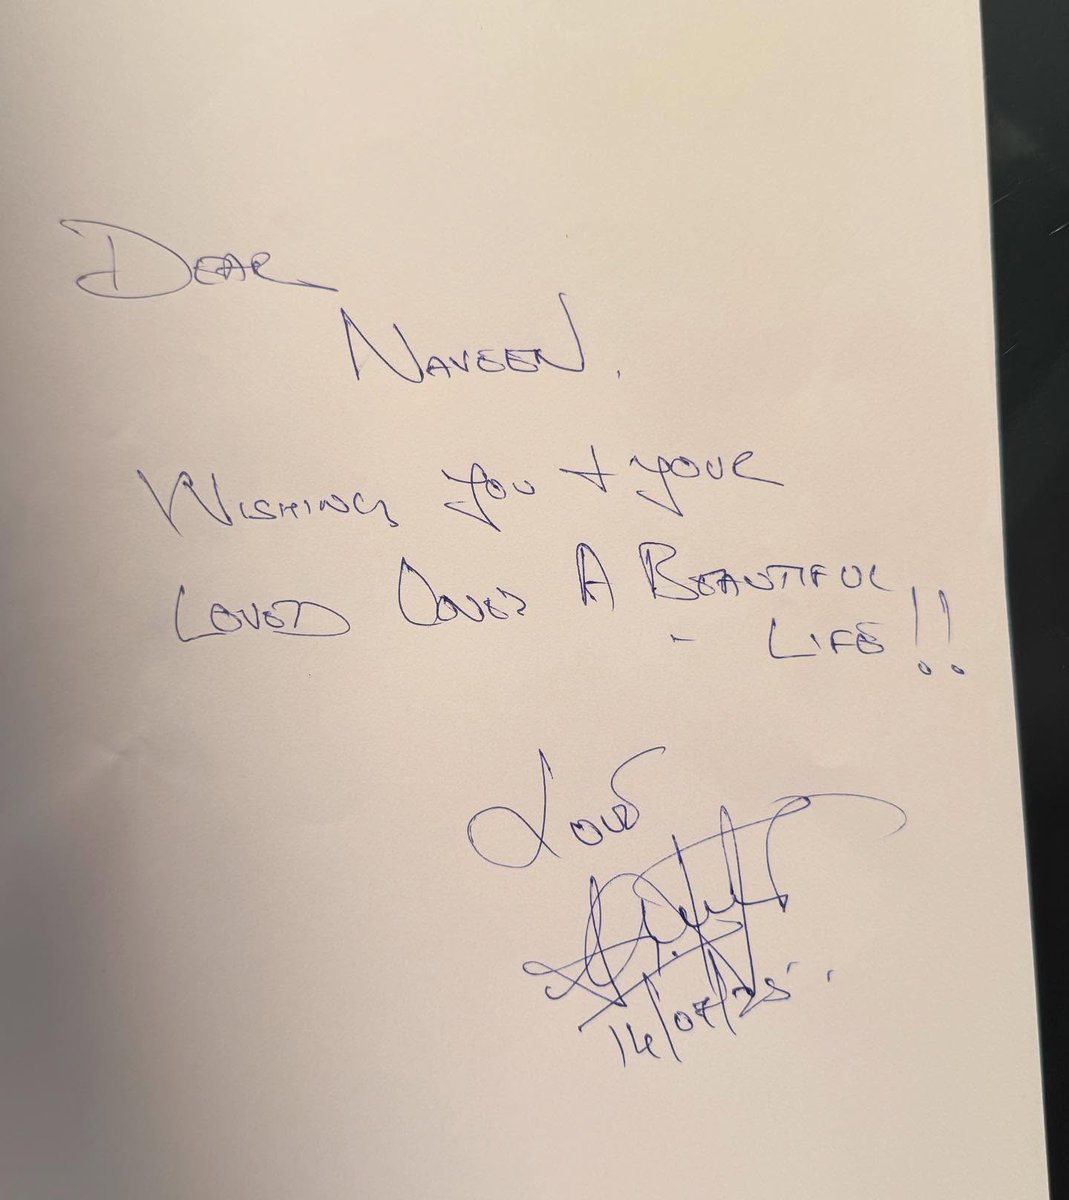 DEAR
NAVEEN.
WISHING YOU + YOUR
LOVED ONES A BEAUTIFUL
- LIFE!!
Love
14/07/25